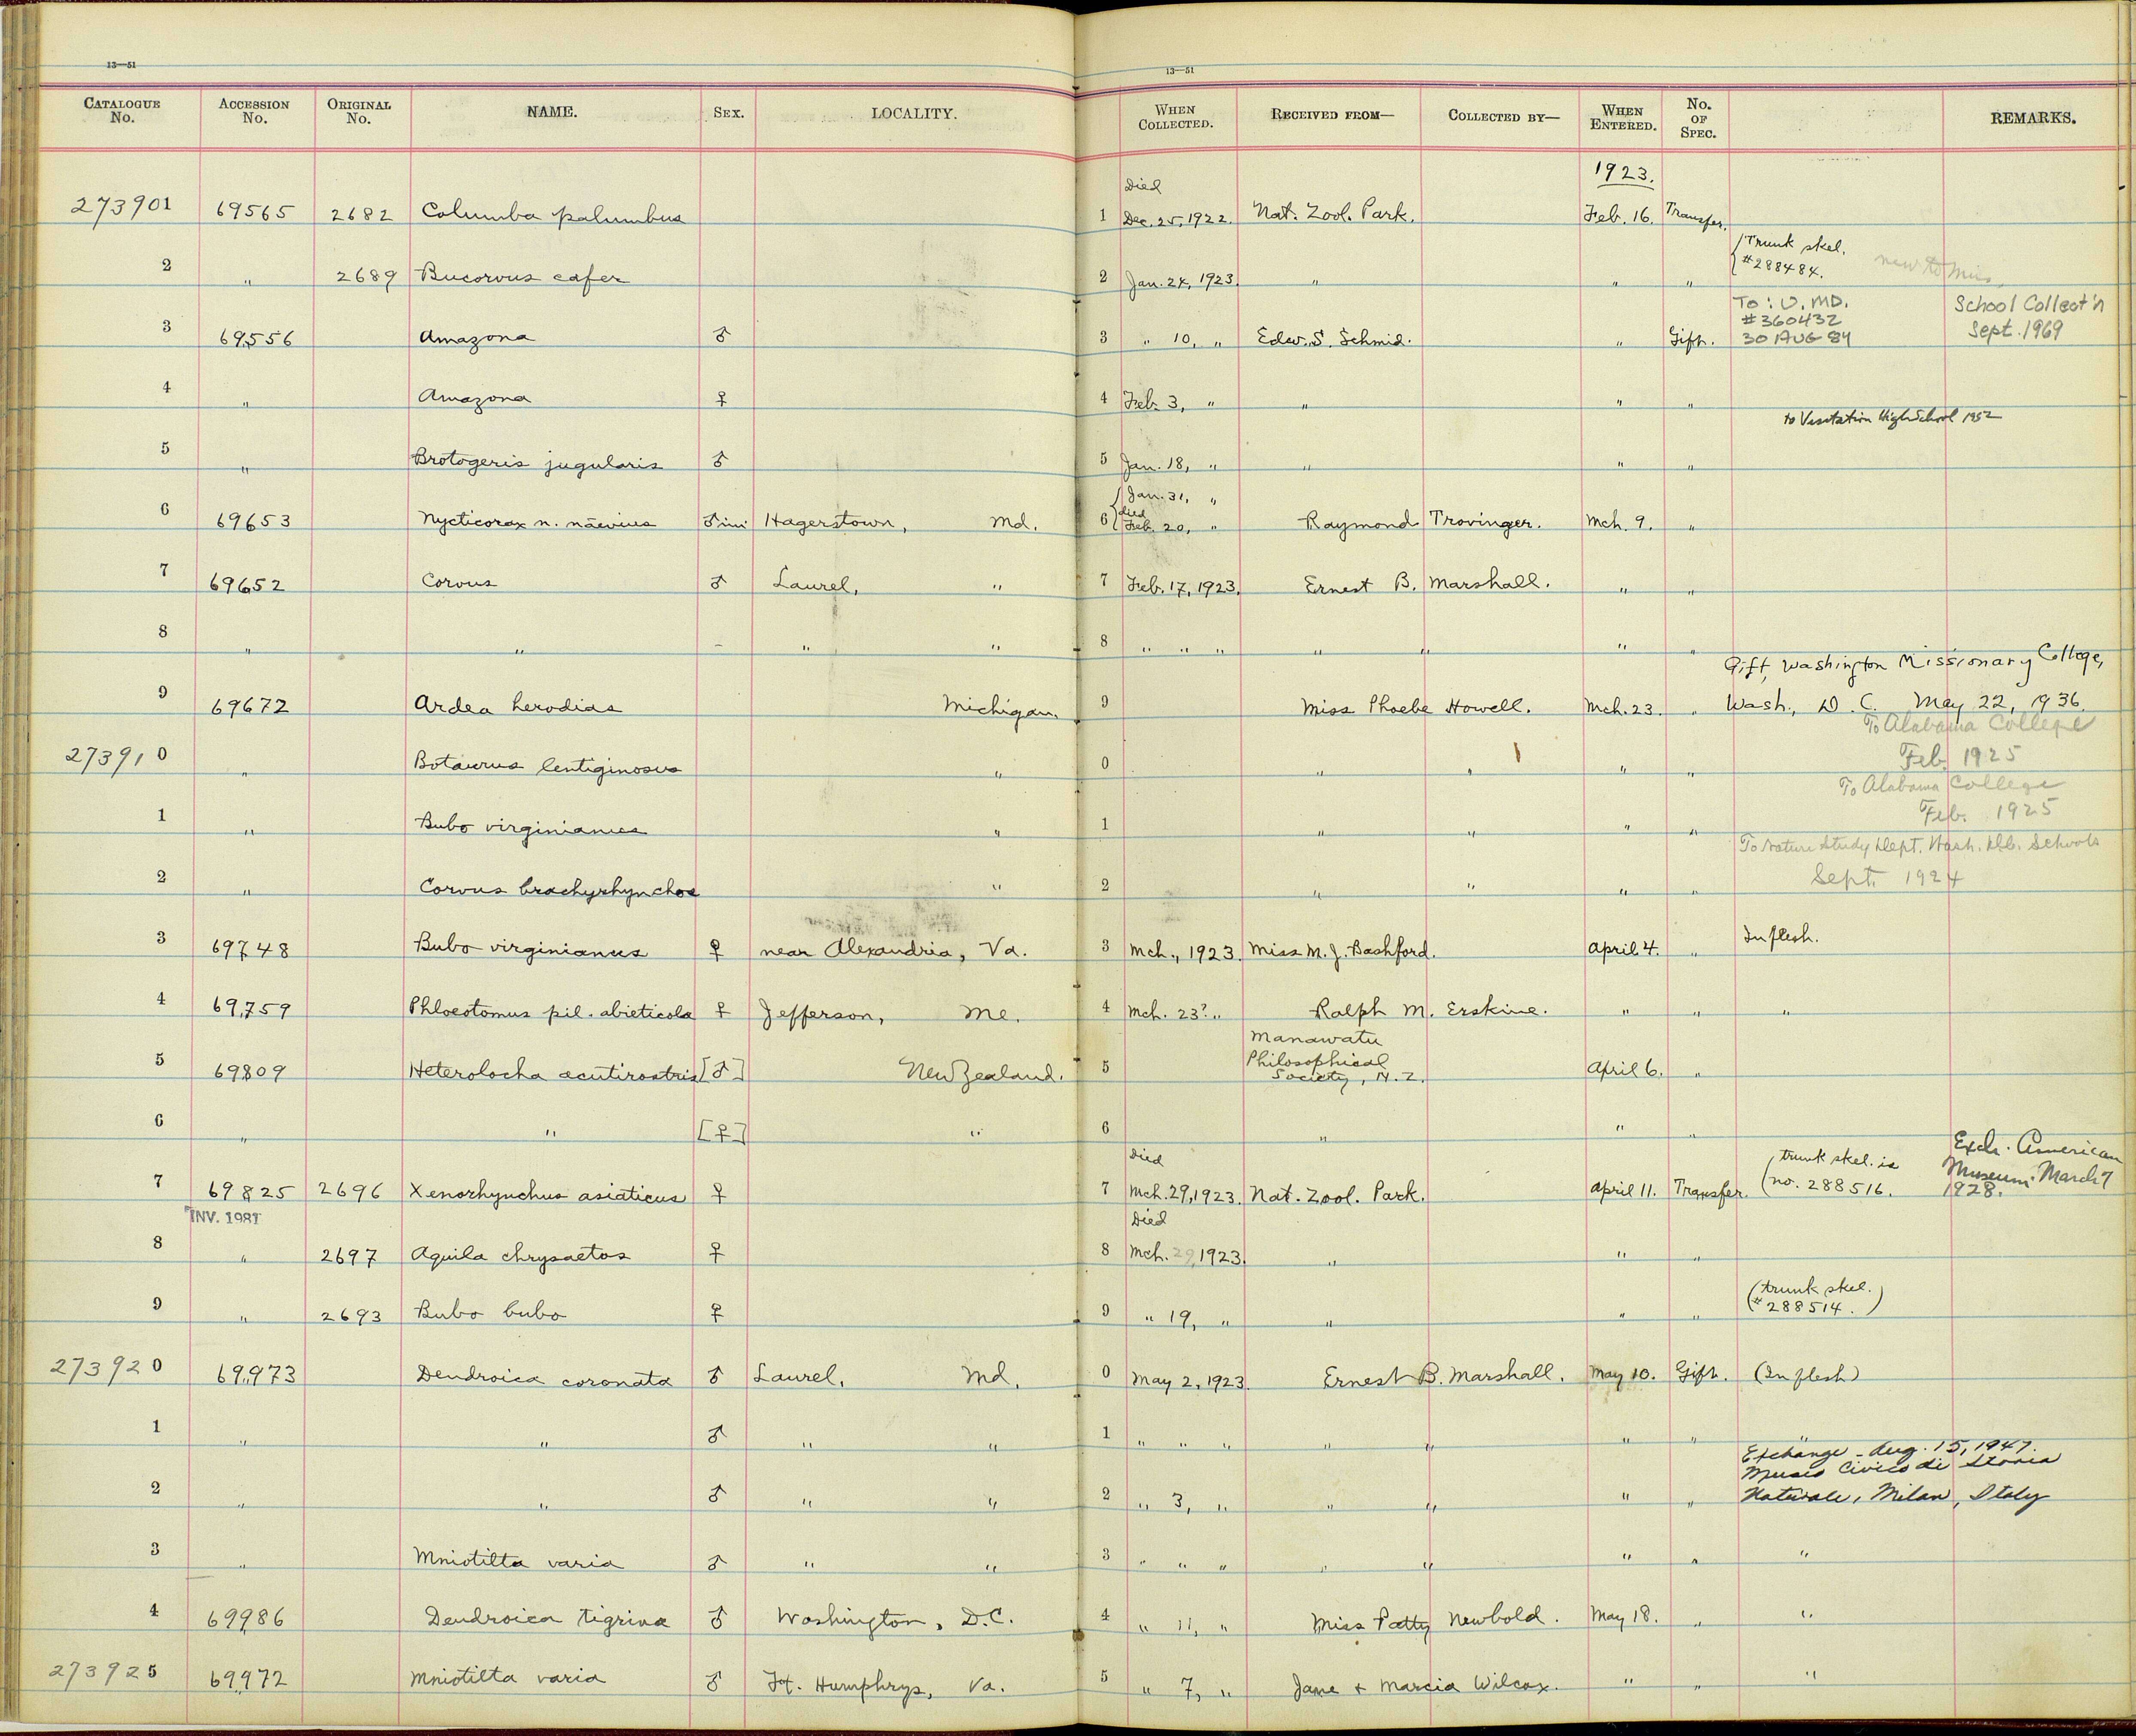 13—51 13—51
CATALOGUE No. ACCESSION No. ORIGINAL No. NAME. SEX. LOCALITY. WHEN COLLECTED. RECEIVED FROM— COLLECTED BY— WHEN ENTERED. No. OF SPEC. REMARKS.
1923.
Died
273901 69565 2682 Columba palumbus 1 Dec. 25, 1922. Nat. Zool. Park. Feb. 16. Transfer.
{Trunk skel.
#288484. new to Mus.
2 " 2689 Bucorvus cafer 2 Jan. 24, 1923. " " "
To: U. MD. School Collect'n
#360432 Sept. 1969
3 69556 Amazona ♂ 3 " 10, " Edw. S. Schmid. " Gift. 30 AUG 84
4 " Amazona ♀ 4 Feb. 3, " " " "
to Visitation High School 1952
5 " Brotogeris jugularis ♂ 5 Jan. 18, " " " "
{Jan. 31, "
died
6 69653 Nycticorax n. nævius ♂ im Hagerstown, Md. 6 Feb. 20, " Raymond Trovinger. Mch. 9. "
7 69652 Corvus ♂ Laurel, " 7 Feb. 17, 1923. Ernest B. Marshall. " "
8 " " - " " 8 " " " " " " "
Gift, Washington Missionary College,
9 69672 Ardea herodias Michigan. 9 Miss Phoebe Howell. Mch. 23. " Wash., D. C. May 22, 1936.
To Alabama College
273910 " Botaurus lentiginosus " 0 " " " " Feb. 1925
To Alabama College
1 " Bubo virginianus " 1 " " " " Feb. 1925
To Nature Study Dept. Wash. D.C. Schools
2 " Corvus brachyrhynchos " 2 " " " " Sept. 1924
3 69748 Bubo virginianus ♀ near Alexandria, Va. 3 Mch., 1923. Miss M. J. Bashford. April 4. " In flesh.
4 69759 Phloeotomus pil. abieticola ♀ Jefferson, Me. 4 Mch. 23? " Ralph M. Erskine. " " "
Manawatu
Philosophical
5 69809 Heterolocha acutirostris [♂] New Zealand. 5 Society, N.Z. April 6. "
6 " " [♀] " 6 " " "
Died (trunk skel. is Exch. American
7 69825 2696 Xenorhynchus asiaticus ♀ 7 Mch. 29, 1923. Nat. Zool. Park. April 11. Transfer. no. 288516. Museum. March 7
1928.
INV. 1981 Died
8 " 2697 Aquila chrysaetos ♀ 8 Mch. 29, 1923. " " "
(trunk skel.
9 " 2693 Bubo bubo ♀ 9 " 19, " " " " #288514.)
273920 69973 Dendroica coronata ♂ Laurel, Md. 0 May 2, 1923. Ernest B. Marshall. May 10. Gift. (In flesh)
1 " " ♂ " " 1 " " " " " " " "
Exchange - Aug. 15, 1947.
Museo Civico di Storia
2 " " ♂ " " 2 " 3, " " " " " Naturale, Milan, Italy
3 " Mniotilta varia ♂ " " 3 " " " " " " " "
4 69986 Dendroica tigrina ♂ Washington, D.C. 4 " 11, " Miss Patty Newbold. May 18. " "
273925 69972 Mniotilta varia ♂ Ft. Humphrys, Va. 5 " 7, " Jane & Marcia Wilcox. " " "